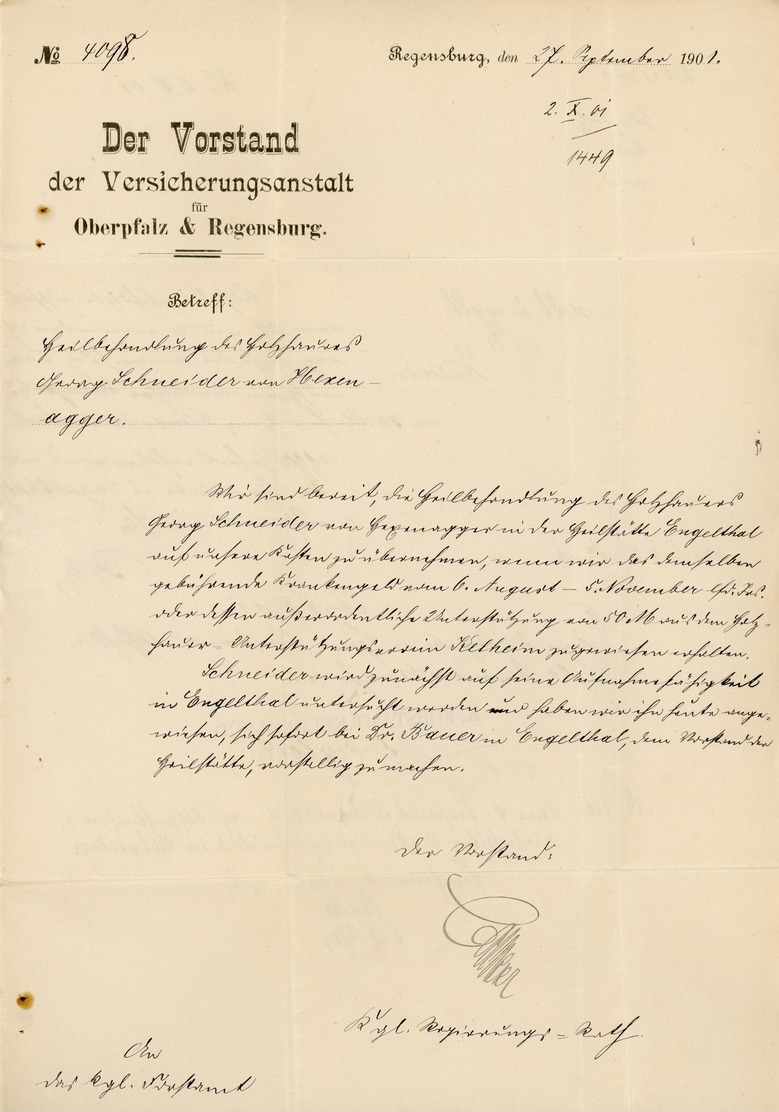 No 4098.
Regensburg, den 27. September 1901.
2. X. 01
1449
Der Vorstand
der Versicherungsanstalt
für
Oberpfalz & Regensburg.
Betreff:
Heilbehandlung des Holzhauers
Georg Schneider von Hexen-
agger.
Wir sind bereit, die Heilbehandlung des Holzhauers
Georg Schneider von Hexenagger in der Heilstätte Engelthal
auf unsere Kosten zu übernehmen, wenn wir das demselben
gebührende Krankengeld vom 6. August – 5. November lfd. Jrs.
oder dessen außerordentliche Unterstützung von 50 M aus dem Holz-
hauer-Unterstützungsverein Kelheim zugewiesen erhalten.
Schneider wird zunächst auf seine Aufnahmefähigkeit
in Engelthal untersucht werden und haben wir ihn heute ange-
wiesen, sich sofort bei Dr. Bauer in Engelthal, dem Vorstand der
Heilstätte, vorstellig zu machen.
Der Vorstand:
Kgl. Regierungs-Rath
An
das kgl. Forstamt